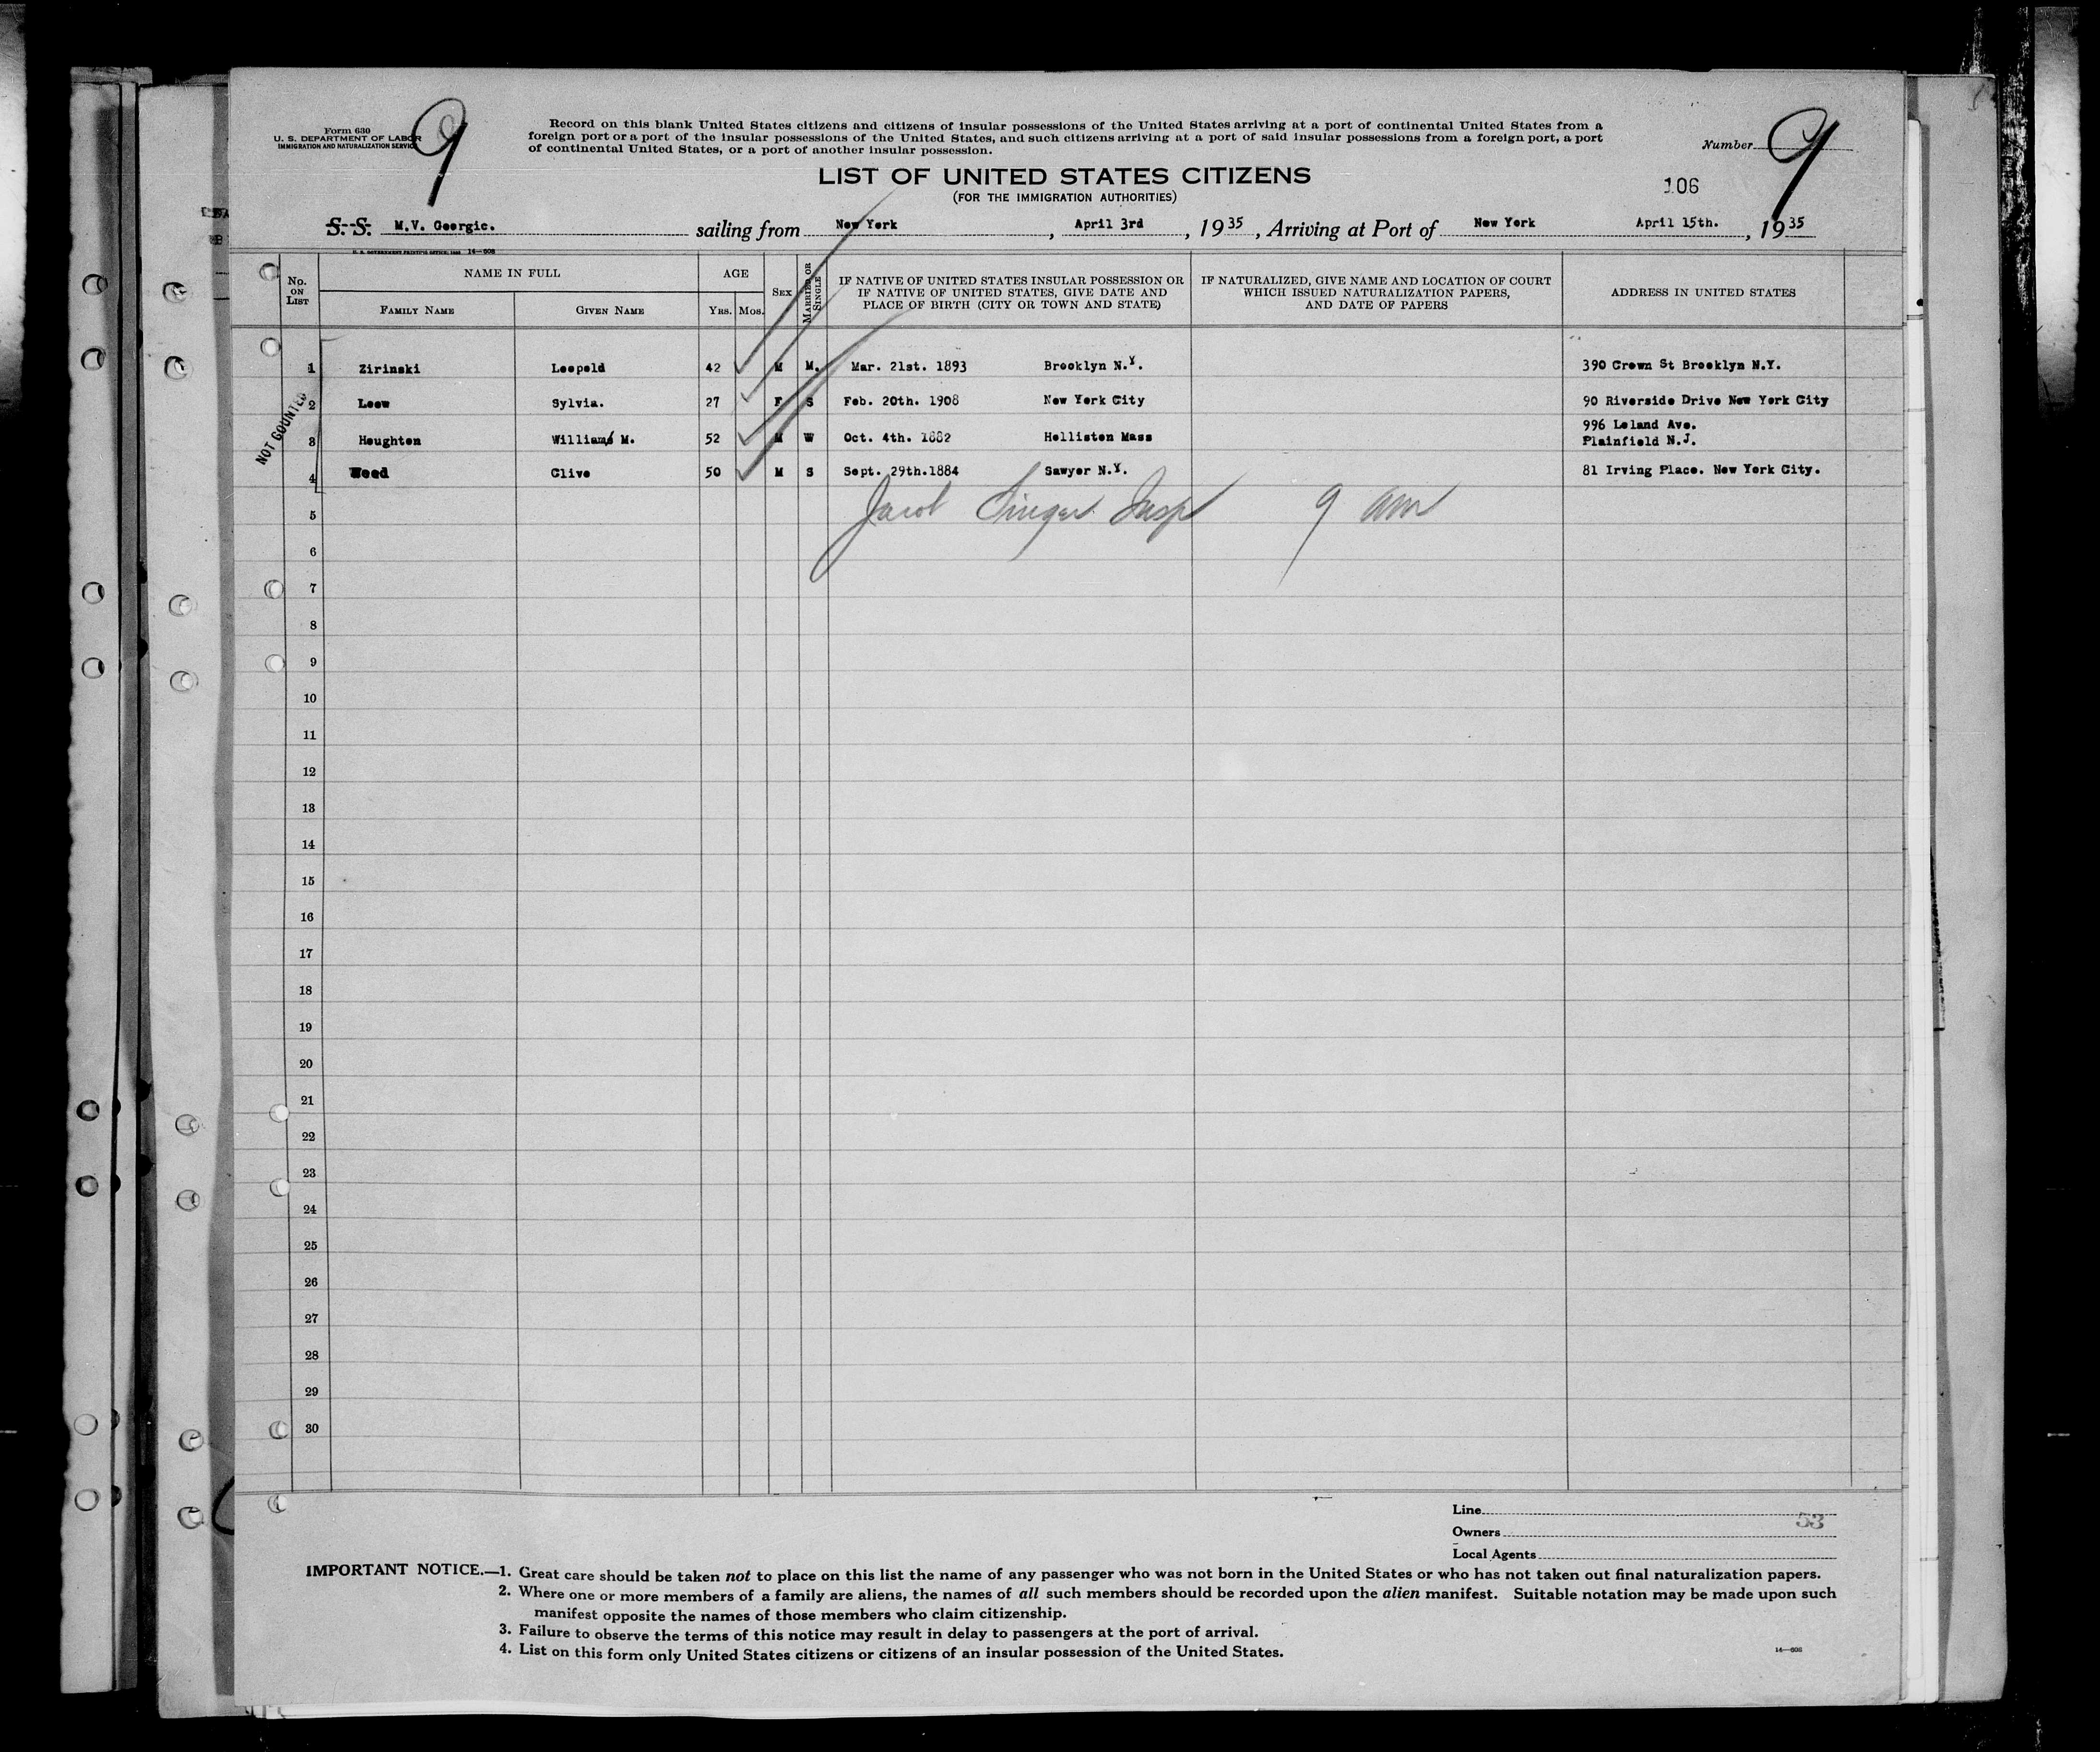 Form 630
U. S. DEPARTMENT OF LABOR
IMMIGRATION AND NATURALIZATION SERVICE
9
Record on this blank United States citizens and citizens of insular possessions of the United States arriving at a port of continental United States from a
foreign port or a port of the insular possessions of the United States, and such citizens arriving at a port of said insular possessions from a foreign port, a port
of continental United States, or a port of another insular possession.
Number 9
LIST OF UNITED STATES CITIZENS
(FOR THE IMMIGRATION AUTHORITIES)
106
S. S. M.V. Georgic. sailing from New York, April 3rd, 1935, Arriving at Port of New York April 15th., 1935
U. S. GOVERNMENT PRINTING OFFICE 14—608
No. ON LIST
NAME IN FULL
FAMILY NAME
GIVEN NAME
AGE
YRS. MOS.
SEX
MARRIED OR SINGLE
IF NATIVE OF UNITED STATES INSULAR POSSESSION OR
IF NATIVE OF UNITED STATES, GIVE DATE AND
PLACE OF BIRTH (CITY OR TOWN AND STATE)
IF NATURALIZED, GIVE NAME AND LOCATION OF COURT
WHICH ISSUED NATURALIZATION PAPERS,
AND DATE OF PAPERS
ADDRESS IN UNITED STATES
NOT COUNTED
1 Zirinski Leopold 42 M M. Mar. 21st. 1893 Brooklyn N.Y. 390 Crown St Brooklyn N.Y.
2 Loew Sylvia. 27 F S Feb. 20th. 1908 New York City 90 Riverside Drive New York City
3 Houghton Williams M. 52 M W Oct. 4th. 1882 Holliston Mass 996 Leland Ave.
Plainfield N.J.
4 Weed Clive 50 M S Sept. 29th.1884 Sawyer N.Y. 81 Irving Place. New York City.
Jacob Singer Insp 9 am
5
6
7
8
9
10
11
12
13
14
15
16
17
18
19
20
21
22
23
24
25
26
27
28
29
30
Line
53
Owners
Local Agents
IMPORTANT NOTICE.—1. Great care should be taken not to place on this list the name of any passenger who was not born in the United States or who has not taken out final naturalization papers.
2. Where one or more members of a family are aliens, the names of all such members should be recorded upon the alien manifest. Suitable notation may be made upon such
manifest opposite the names of those members who claim citizenship.
3. Failure to observe the terms of this notice may result in delay to passengers at the port of arrival.
4. List on this form only United States citizens or citizens of an insular possession of the United States.
14—608